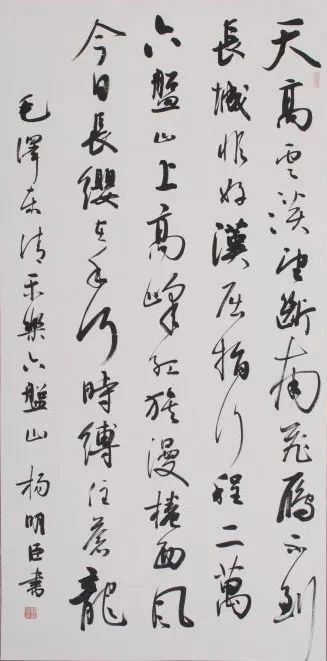 天高云淡望斷南飛雁不到
長城非好漢屈指行程二萬
六盤山上高峰紅旗漫捲西風
今日長纓在手何時縛住蒼龍
毛澤東清平樂六盤山 楊明臣書